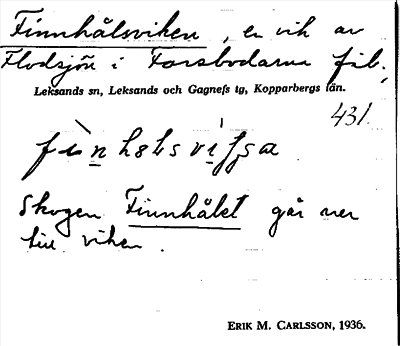 Finnhålsviken, en vik av
Flodsjön i Forsbodarna fäb.,
Leksands sn, Leksands och Gagnefs tg, Kopparbergs län.
431.
Skogen Finnhålet går ner
till viken.
ERIK M. CARLSSON, 1936.